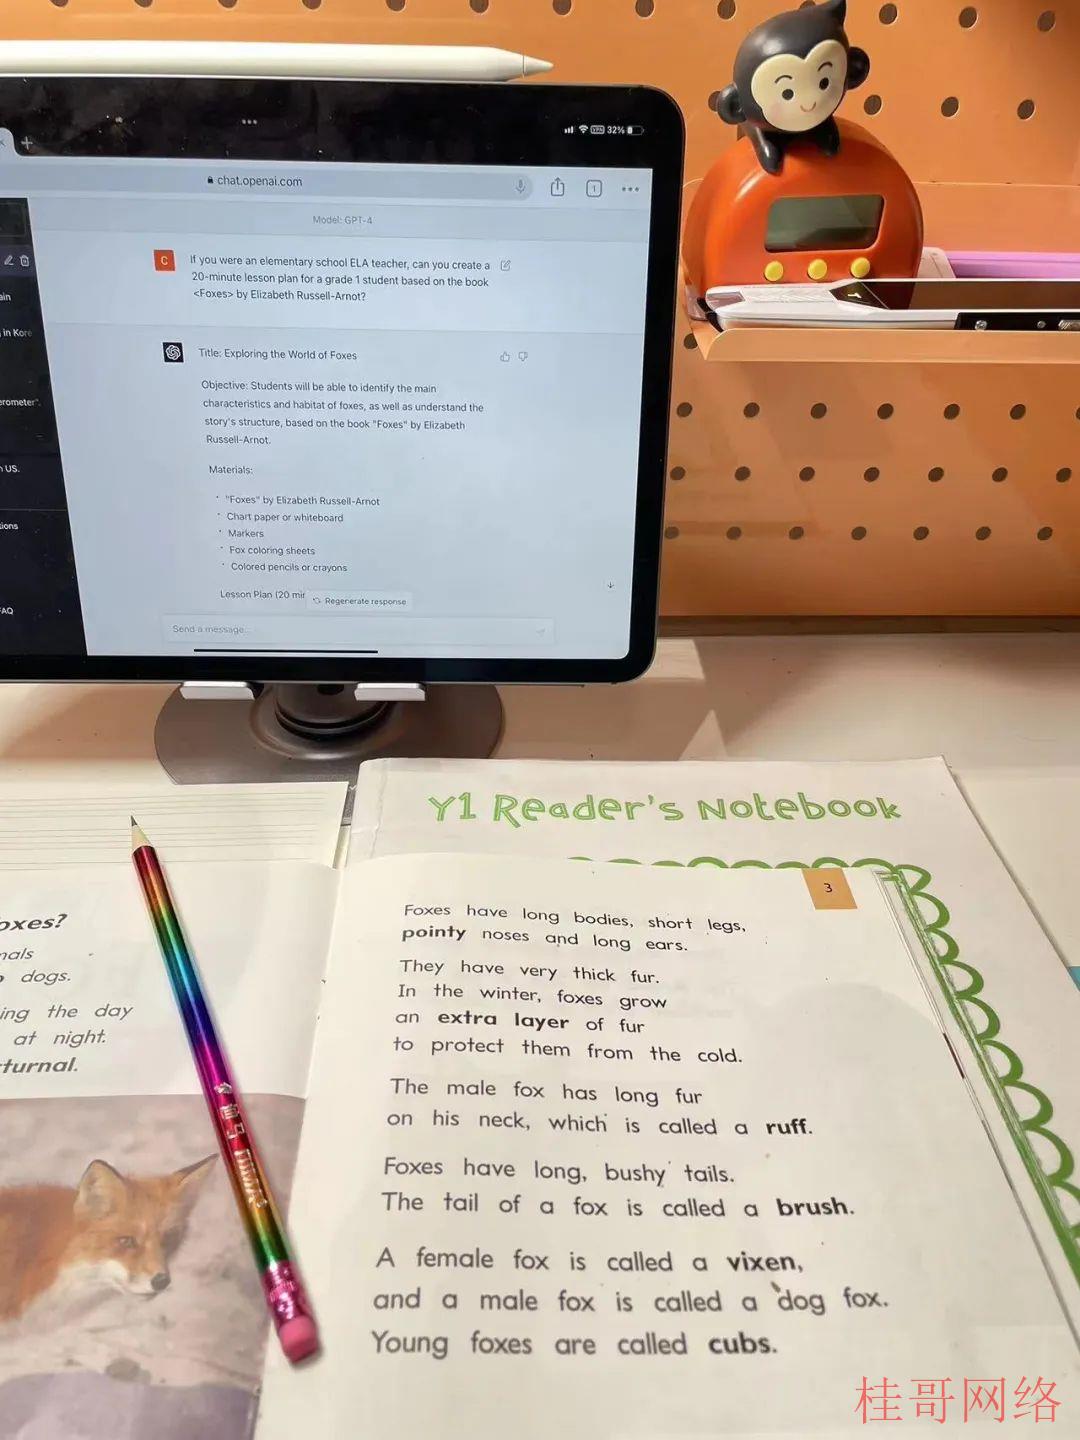 32%
chat.openai.com
1
Model: GPT-4
C
If you were an elementary school ELA teacher, can you create a
20-minute lesson plan for a grade 1 student based on the book
<Foxes> by Elizabeth Russell-Arnot?
in Kore
erometer".
US.
FAQ
Title: Exploring the World of Foxes
Objective: Students will be able to identify the main
characteristics and habitat of foxes, as well as understand the
story's structure, based on the book "Foxes" by Elizabeth
Russell-Arnot.
Materials:
"Foxes" by Elizabeth Russell-Arnot
Chart paper or whiteboard
Markers
Fox coloring sheets
Colored pencils or crayons
Lesson Plan (20 min
Regenerate response
Send a message...
Y1 Reader's Notebook
oxes?
mals
dogs.
ing the day
at night.
cturnal.
3
Foxes have long bodies, short legs,
pointy noses and long ears.
They have very thick fur.
In the winter, foxes grow
an extra layer of fur
to protect them from the cold.
The male fox has long fur
on his neck, which is called a ruff.
Foxes have long, bushy tails.
The tail of a fox is called a brush.
A female fox is called a vixen,
and a male fox is called a dog fox.
Young foxes are called cubs.
桂哥网络